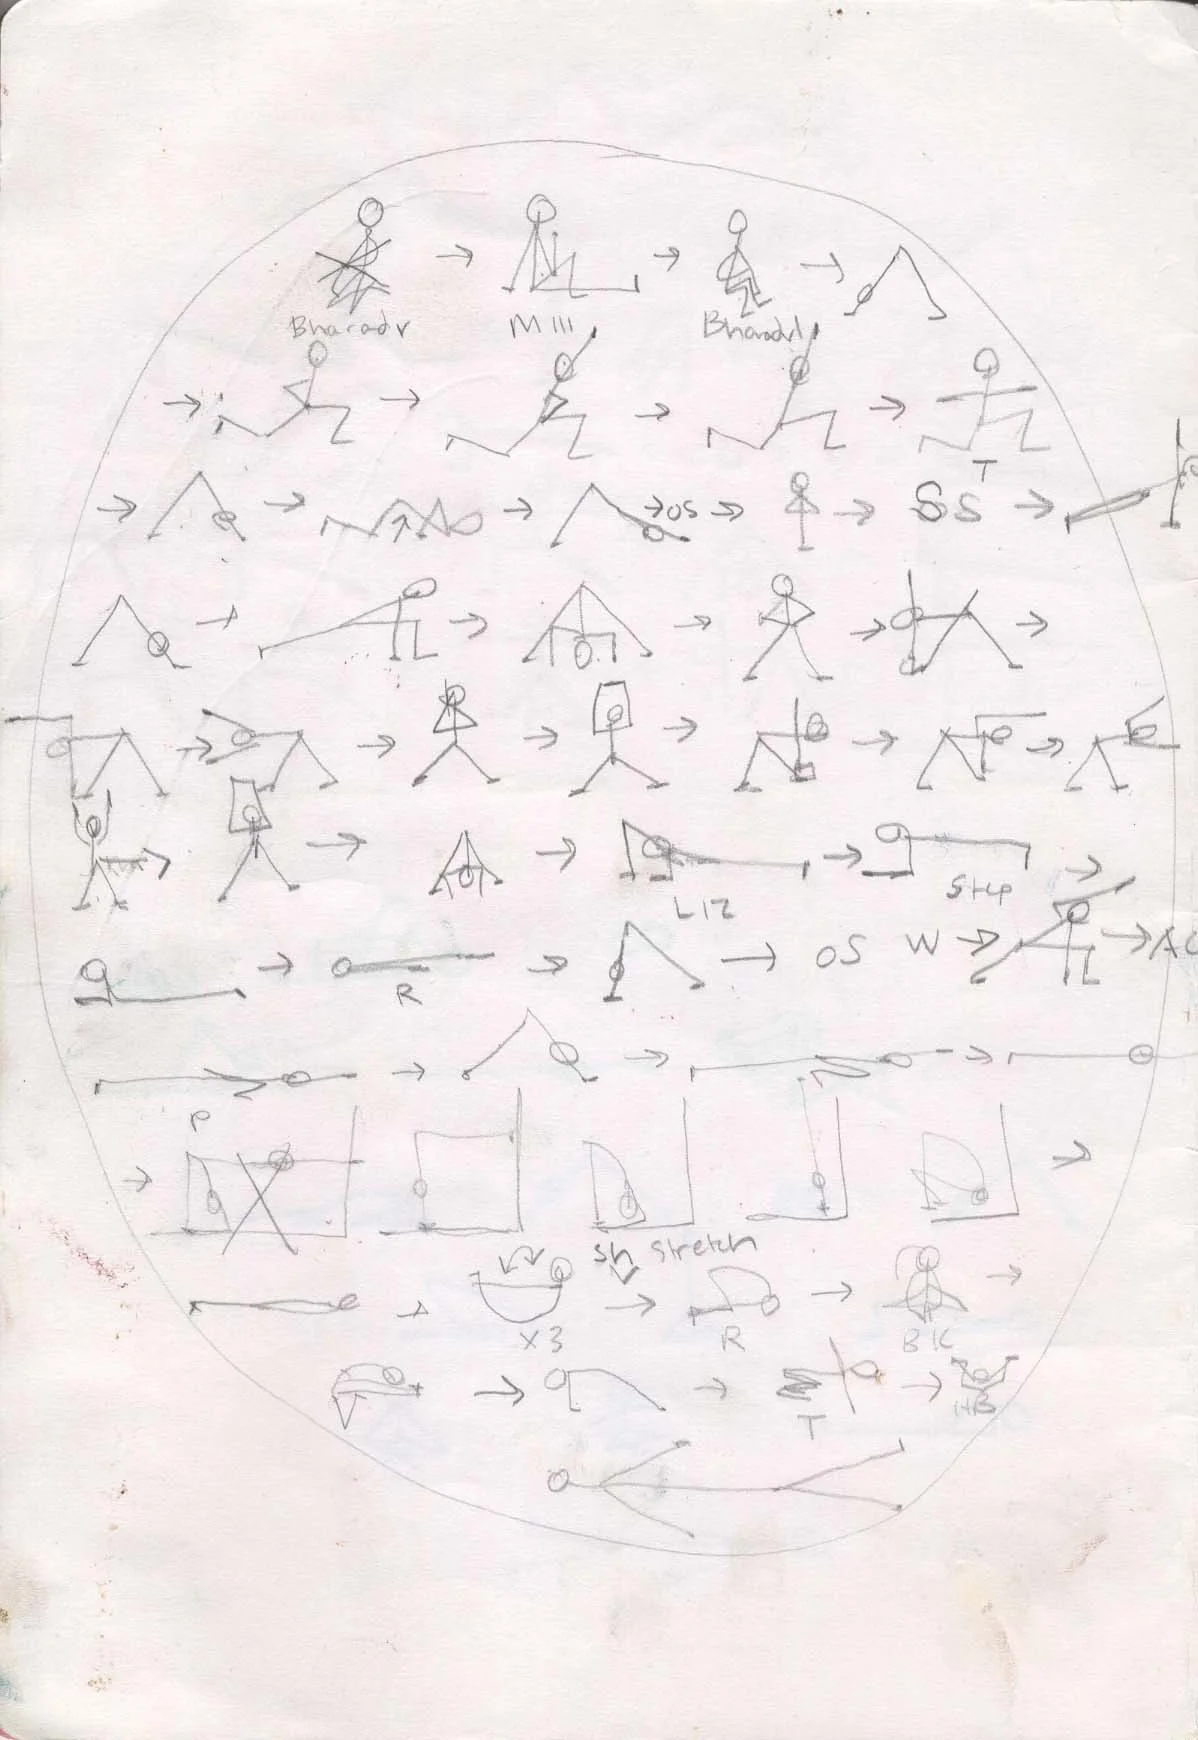 Bharadv M III
T
OS SS
LIZ Step
R OS W
P
Sh Stretch
X3 R BK
T HB